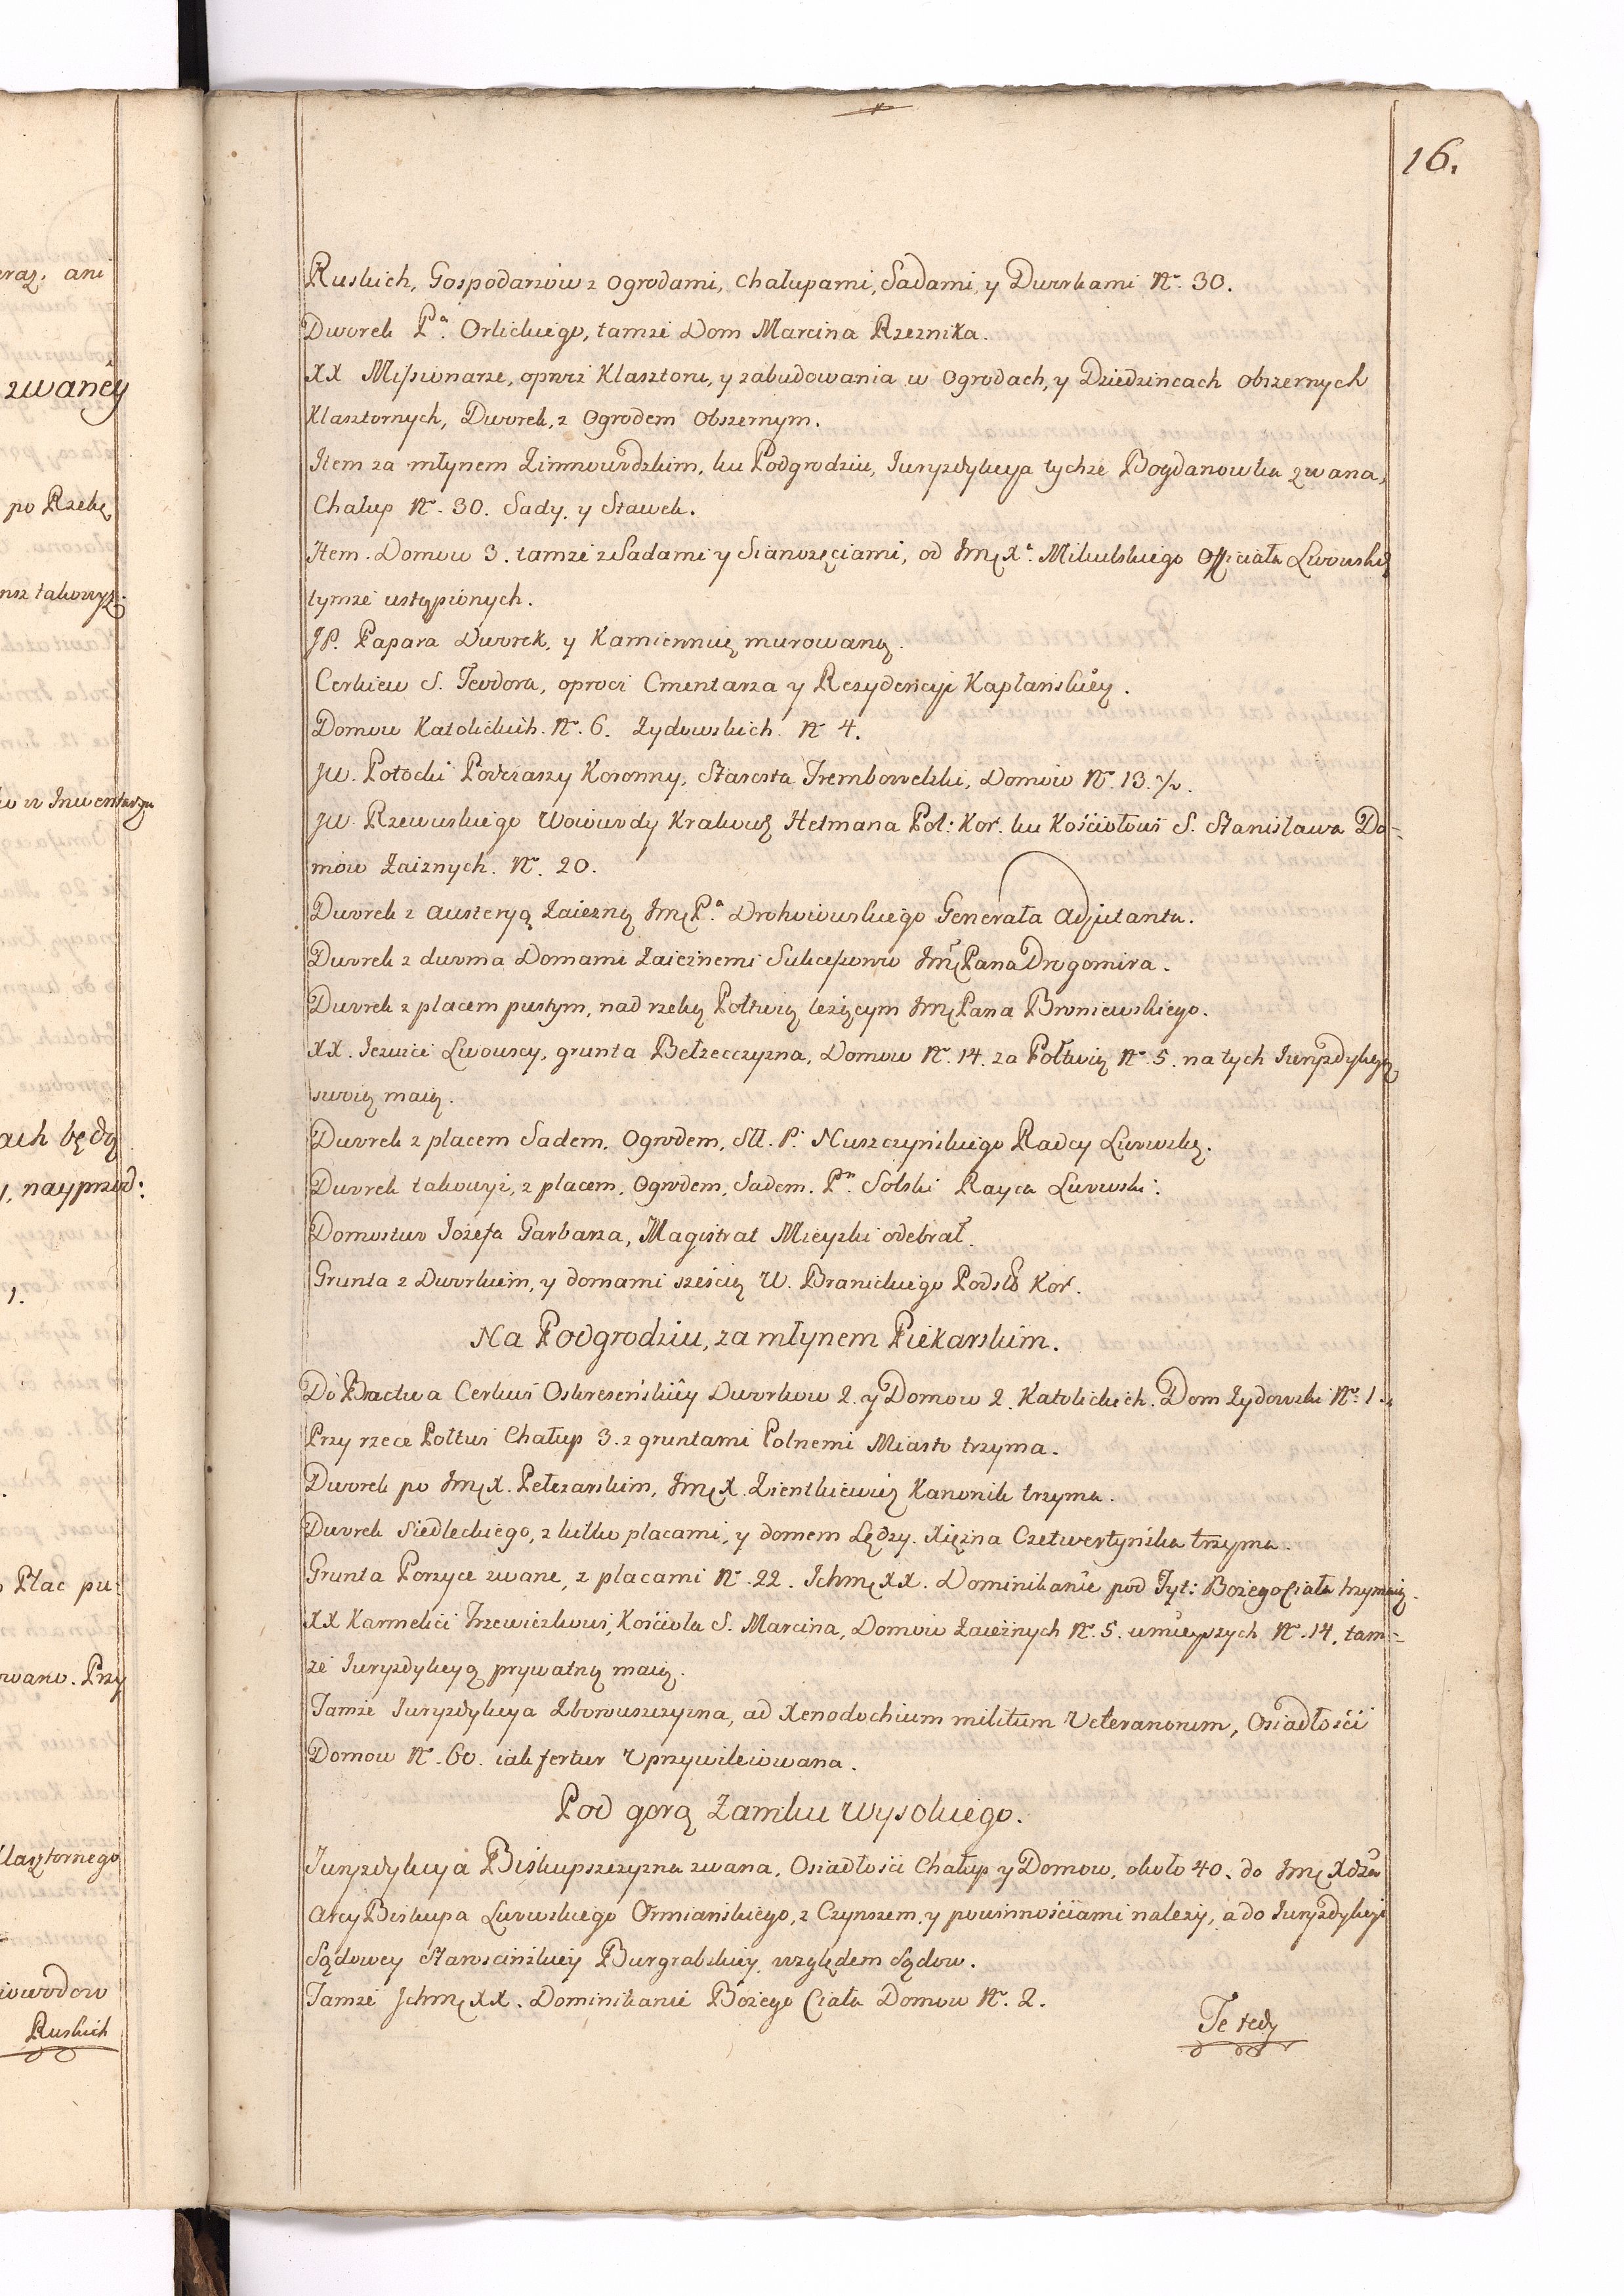 16.
Ruskich, Gospodarzow z Ogrodami, Chałupami, Sadami, y Dworkami Nro. 30.
Dworek Pa. Orlickiego, tamże Dom Marcina Rzeznika.
XX Missionarze, oprocz Klasztoru, y zabudowania w Ogrodach, y Dziedzincach obszernych
Klasztornych, Dworek, z Ogrodem Obszernym.
Item za młynem Zimnowodzkim, ku Podgrodziu, Juryzdykcya tychże Bogdanowka zwana,
Chałup Nro. 30. Sady, y Stawek.
Item. Domow 3. tamże z Sadami y Sianożęciami, od Jmę Xa. Mikulskiego Officiała Lwowskg
tymże ustąpionych.
JP. Papara Dworek, y Kamiennicę murowaną.
Cerkiew S. Teodora, oprocz Cmentarza y Rezydencyi Kapłańskiey.
Domow Katolickich. Nro. 6. Zydowskich. Nro 4.
JW. Potocki Podczaszy Koronny, Starosta Trembowelski, Domow Nro. 13. ½.
JW. Rzewuskiego Wojewody Krakowg Hetmana Pol: Kor. ku Kościołowi S. Stanisława Do-
mow Zaiznych. Nro. 20.
Dworek z austeryą Zaiezną Jmę Pa. Drohoiowskiego Generała Adjutanta.
Dworek z dwoma Domami Zaieznemi Sukcessorow Jmę Pana Drogomira.
Dworek z placem pustym, nad rzeką Połtwią leżącym Jmę Pana Broniewskiego.
XX. Jezuici Lwowscy, grunta Bełzecczyzna, Domow Nro. 14. za Połtwią Nro. 5. na tych Juryzdykcyą
swoią maią.
Dworek z placem Sadem, Ogrodem, Sll. P. Nuszczyńskiego Radcy Lwowskg.
Dworek takowyż, z placem, Ogrodem, Sadem. Pn. Solski Rayca Lwowski.
Domostwo Jozefa Garbarza, Magistrat Mieyski odebrał.
Grunta z Dworkiem, y domami sześcią W. Branickiego Podsto Kor.
Na Podgrodziu, za młynem Piekarskim.
Do Bractwa Cerkwi Oskreseńskiey Dworkow 2. y Domow 2. Katolickich. Dom Zydowski Nro. 1.
Przy rzece Połtwi Chałup 3. z gruntami Polnemi Miasto trzyma.
Dworek po Jmę X. Pełczarskim, Jmę X. Zientkiewicz Kanonik trzyma.
Dworek Siedleckiego, z kilko placami, y domem Lędzy. Xiężna Czetwertyńska trzyma.
Grunta Porzyce zwane, z placami Nro. 22. Ichmę XX. Dominikanie pod Tyt: Bożego Ciała trzymaią.
XX Karmelici Trzewiczkowi, Kościoła S. Marcina, Domow Zaieżnych Nro. 5. umieyszych Nro. 14. tam-
że Juryzdykcyą prywatną maią.
Tamże Juryzdykcya Zborowszczyzna, ad Xenodochium militum Veteranorum, Osiadłości
Domow Nro. 60. iak fertur Uprzywileiowana.
Pod gorą Zamku Wysokiego.
Juryzdykcya Biskupszczyzna zwana, Osiadłości Chałup y Domow, około 40. do Jmę Xdza
Arcy Biskupa Lwowskiego Ormiańskiego, z Czynszem, y powinnościami należy, a do Juryzdykcyi
Sądowey Starościńskiey Burgrabskiey względem Sądow.
Tamże Jchmę XX. Dominikanie Bożego Ciała Domow Nro. 2.
Te tedy